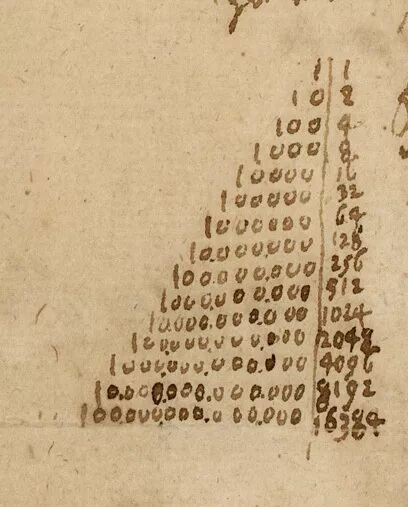 1 | 1
10 | 2
100 | 4
1000 | 8
10000 | 16
100000 | 32
1000000 | 64
10000000 | 128
100000000 | 256
1000000000 | 512
10000000000 | 1024
100000000000 | 2048
1000000000000 | 4096
10000000000000 | 8192
100000000000000 | 16384